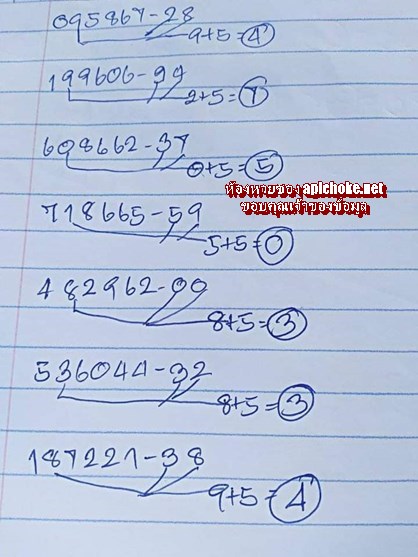 095867-28
9+5=4
199606-99
2+5=7
608662-37
0+5=5
ห้องหวยซองapichoke.net
ขอบคุณเจ้าของข้อมูล
718665-59
5+5=0
482962-00
8+5=3
536044-32
8+5=3
187221-38
9+5=4